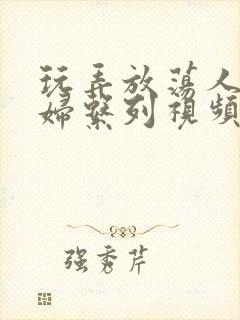 玩弄放荡人
婦繫列視頻
强秀芹